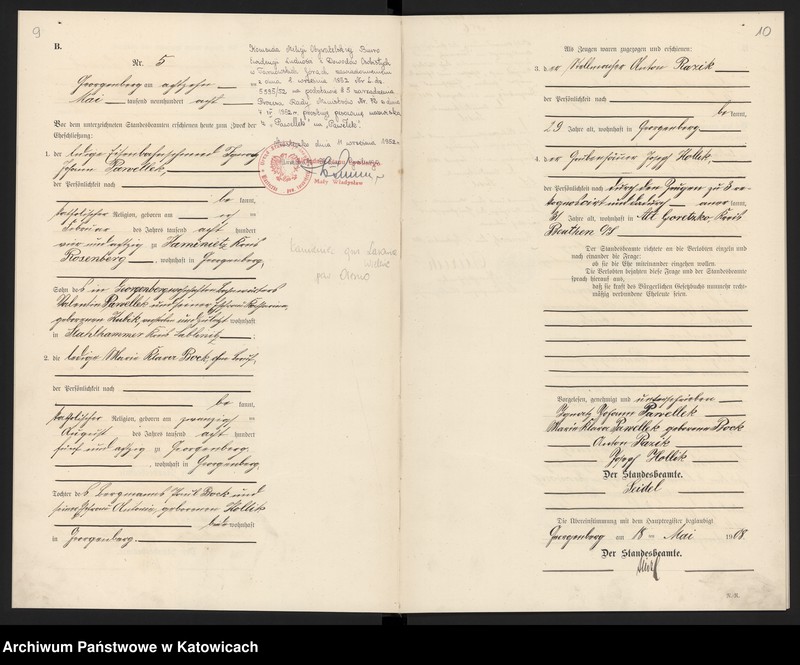 9
B.
Nr. 5
Georgenberg am achtzehn
Mai tausend neunhundert acht
Komenda Milicji Obywatelskiej Biuro
Ewidencji Ludności i Dowodów Osobistych
w Tarnowskich Górach zawiadomieniem
z dnia 8 września 1952 Nr L.dz.
5995/52 na podstawie § 5 zarządzenia
Prezesa Rady Ministrów Nr
1952 r. prostuję nazwisko
z "Pawellek" na "Pawełek".
dnia 11 września 1952 r.
Mały Władysław
Vor dem unterzeichneten Standesbeamten erschienen heute zum Zweck der
Eheschließung:
1. der ledige Eisenbahnschmied Ignatz
Johann Pawellek,
der Persönlichkeit nach
be kannt,
katholischer Religion, geboren am
Februar des Jahres tausend acht hundert
vier und achtzig zu Kaminietz Kreis
Rosenberg, wohnhaft in Georgenberg,
Sohn des in Georgenberg
Valentin Pawellek und seiner Ehefrau
geborenen Kubek, wohnhaft
in Stahlhammer Kreis Lublinitz;
2. die ledige Maria Klara Bock, ohne Beruf,
der Persönlichkeit nach
be kannt,
katholischer Religion, geboren am zwanzig
August des Jahres tausend acht hundert
fünf und achtzig zu Georgenberg,
wohnhaft in Georgenberg,
Tochter des Bergmanns Bock und
seiner Ehefrau Antonie, geborenen Hollik
beide wohnhaft
in Georgenberg.
10
Als Zeugen waren zugezogen und erschienen:
3. der Stellmacher Anton Razik
der Persönlichkeit nach
be kannt,
29 Jahre alt, wohnhaft in Georgenberg
4. der Grubenhäuer Josef Hollik,
der Persönlichkeit nach durch den Zeugen zu 3 re-
kognoscirt und dadurch aner kannt,
31 Jahre alt, wohnhaft in Alt Goretzko, Kreis
Beuthen O/S
Der Standesbeamte richtete an die Verlobten einzeln und
nach einander die Frage:
ob sie die Ehe miteinander eingehen wollen.
Die Verlobten bejahten diese Frage und der Standesbeamte
sprach hierauf aus,
daß sie kraft des Bürgerlichen Gesetzbuchs nunmehr recht-
mäßig verbundene Eheleute seien.
Vorgelesen, genehmigt und unterschrieben
Ignatz Johann Pawellek
Maria Klara Pawellek geborene Bock
Anton Razik
Josef Hollik
Der Standesbeamte.
Seidel
Die Übereinstimmung mit dem Hauptregister beglaubigt
Georgenberg am 18 ten Mai 1908.
Der Standesbeamte.
Seidel
Archiwum Państwowe w Katowicach